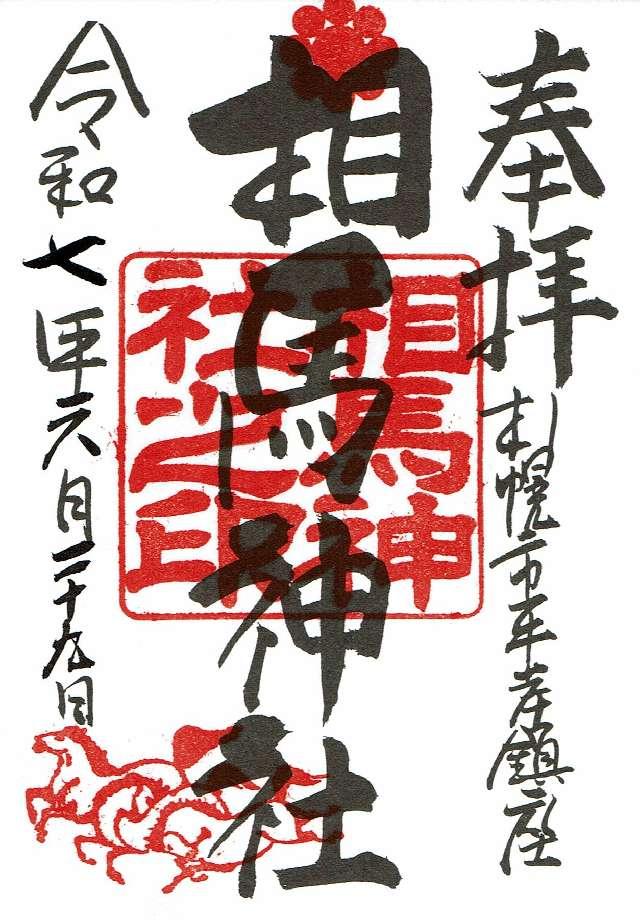 奉拝
札幌市平岸鎮座
相馬神社
相馬神社之印
令和七年六月二十九日